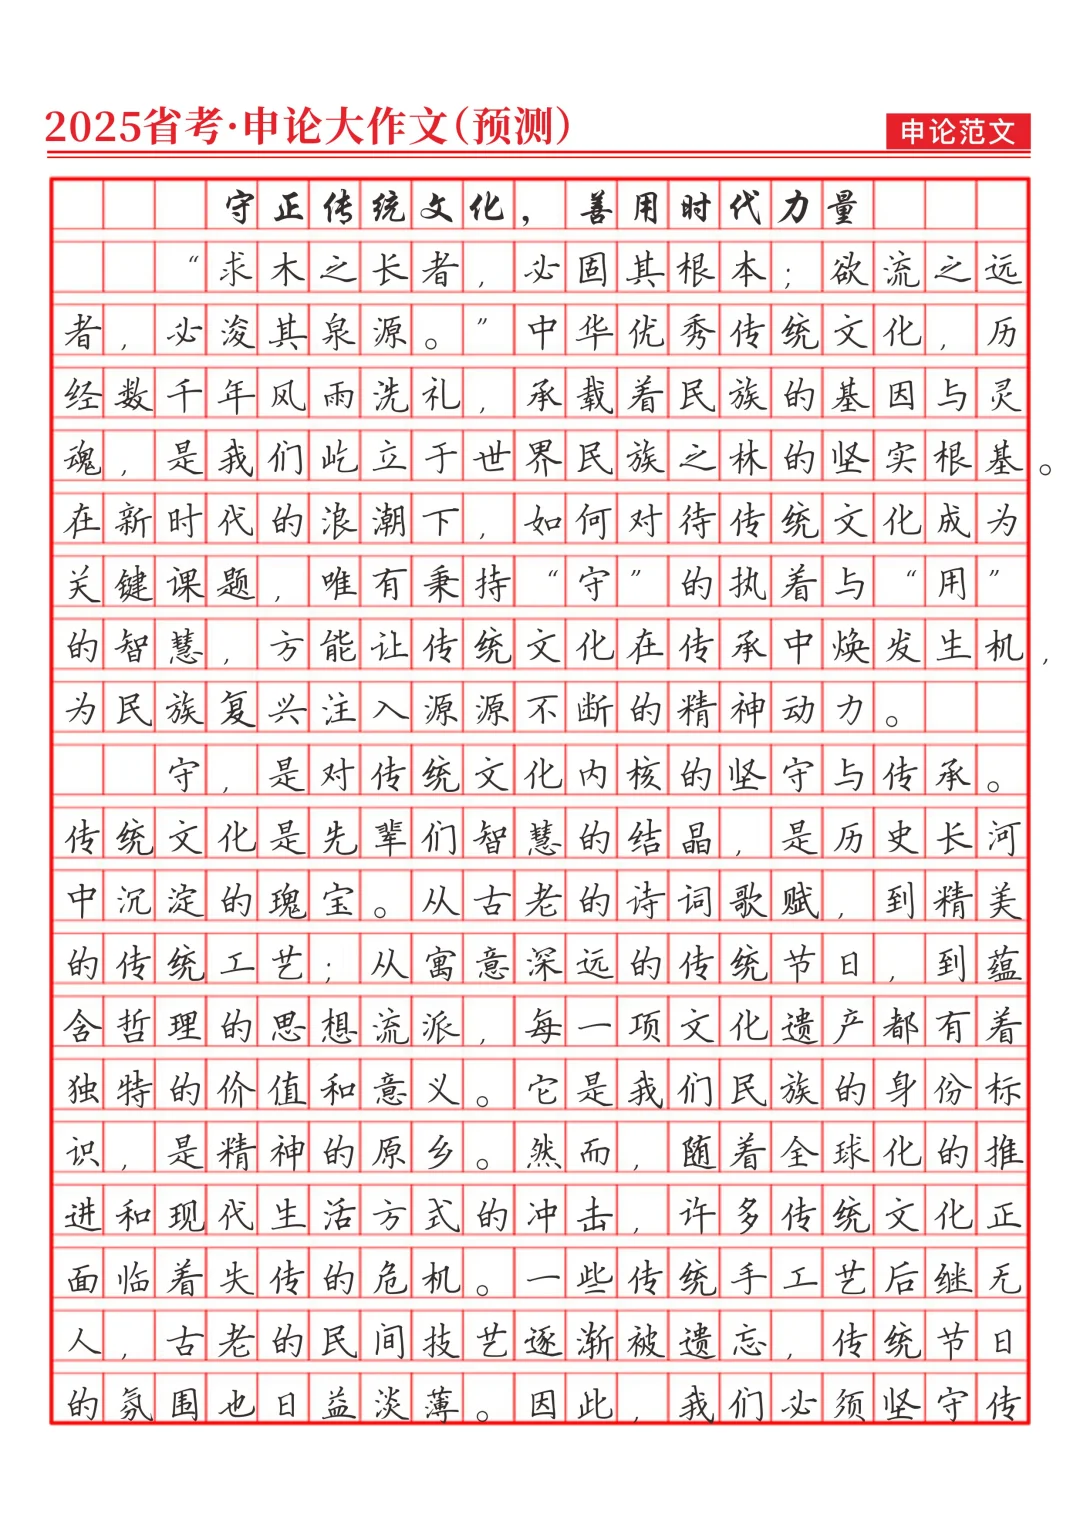 2025省考·申论大作文(预测)
申论范文
守正传统文化，善用时代力量
“求木之长者，必固其根本；欲流之远
者，必浚其泉源。”中华优秀传统文化，历
经数千年风雨洗礼，承载着民族的基因与灵
魂，是我们屹立于世界民族之林的坚实根基。
在新时代的浪潮下，如何对待传统文化成为
关键课题，唯有秉持“守”的执着与“用”
的智慧，方能让传统文化在传承中焕发生机，
为民族复兴注入源源不断的精神动力。
守，是对传统文化内核的坚守与传承。
传统文化是先辈们智慧的结晶，是历史长河
中沉淀的瑰宝。从古老的诗词歌赋，到精美
的传统工艺；从寓意深远的传统节日，到蕴
含哲理的思想流派，每一项文化遗产都有着
独特的价值和意义。它是我们民族的身份标
识，是精神的原乡。然而，随着全球化的推
进和现代生活方式的冲击，许多传统文化正
面临着失传的危机。一些传统手工艺后继无
人，古老的民间技艺逐渐被遗忘，传统节日
的氛围也日益淡薄。因此，我们必须坚守传